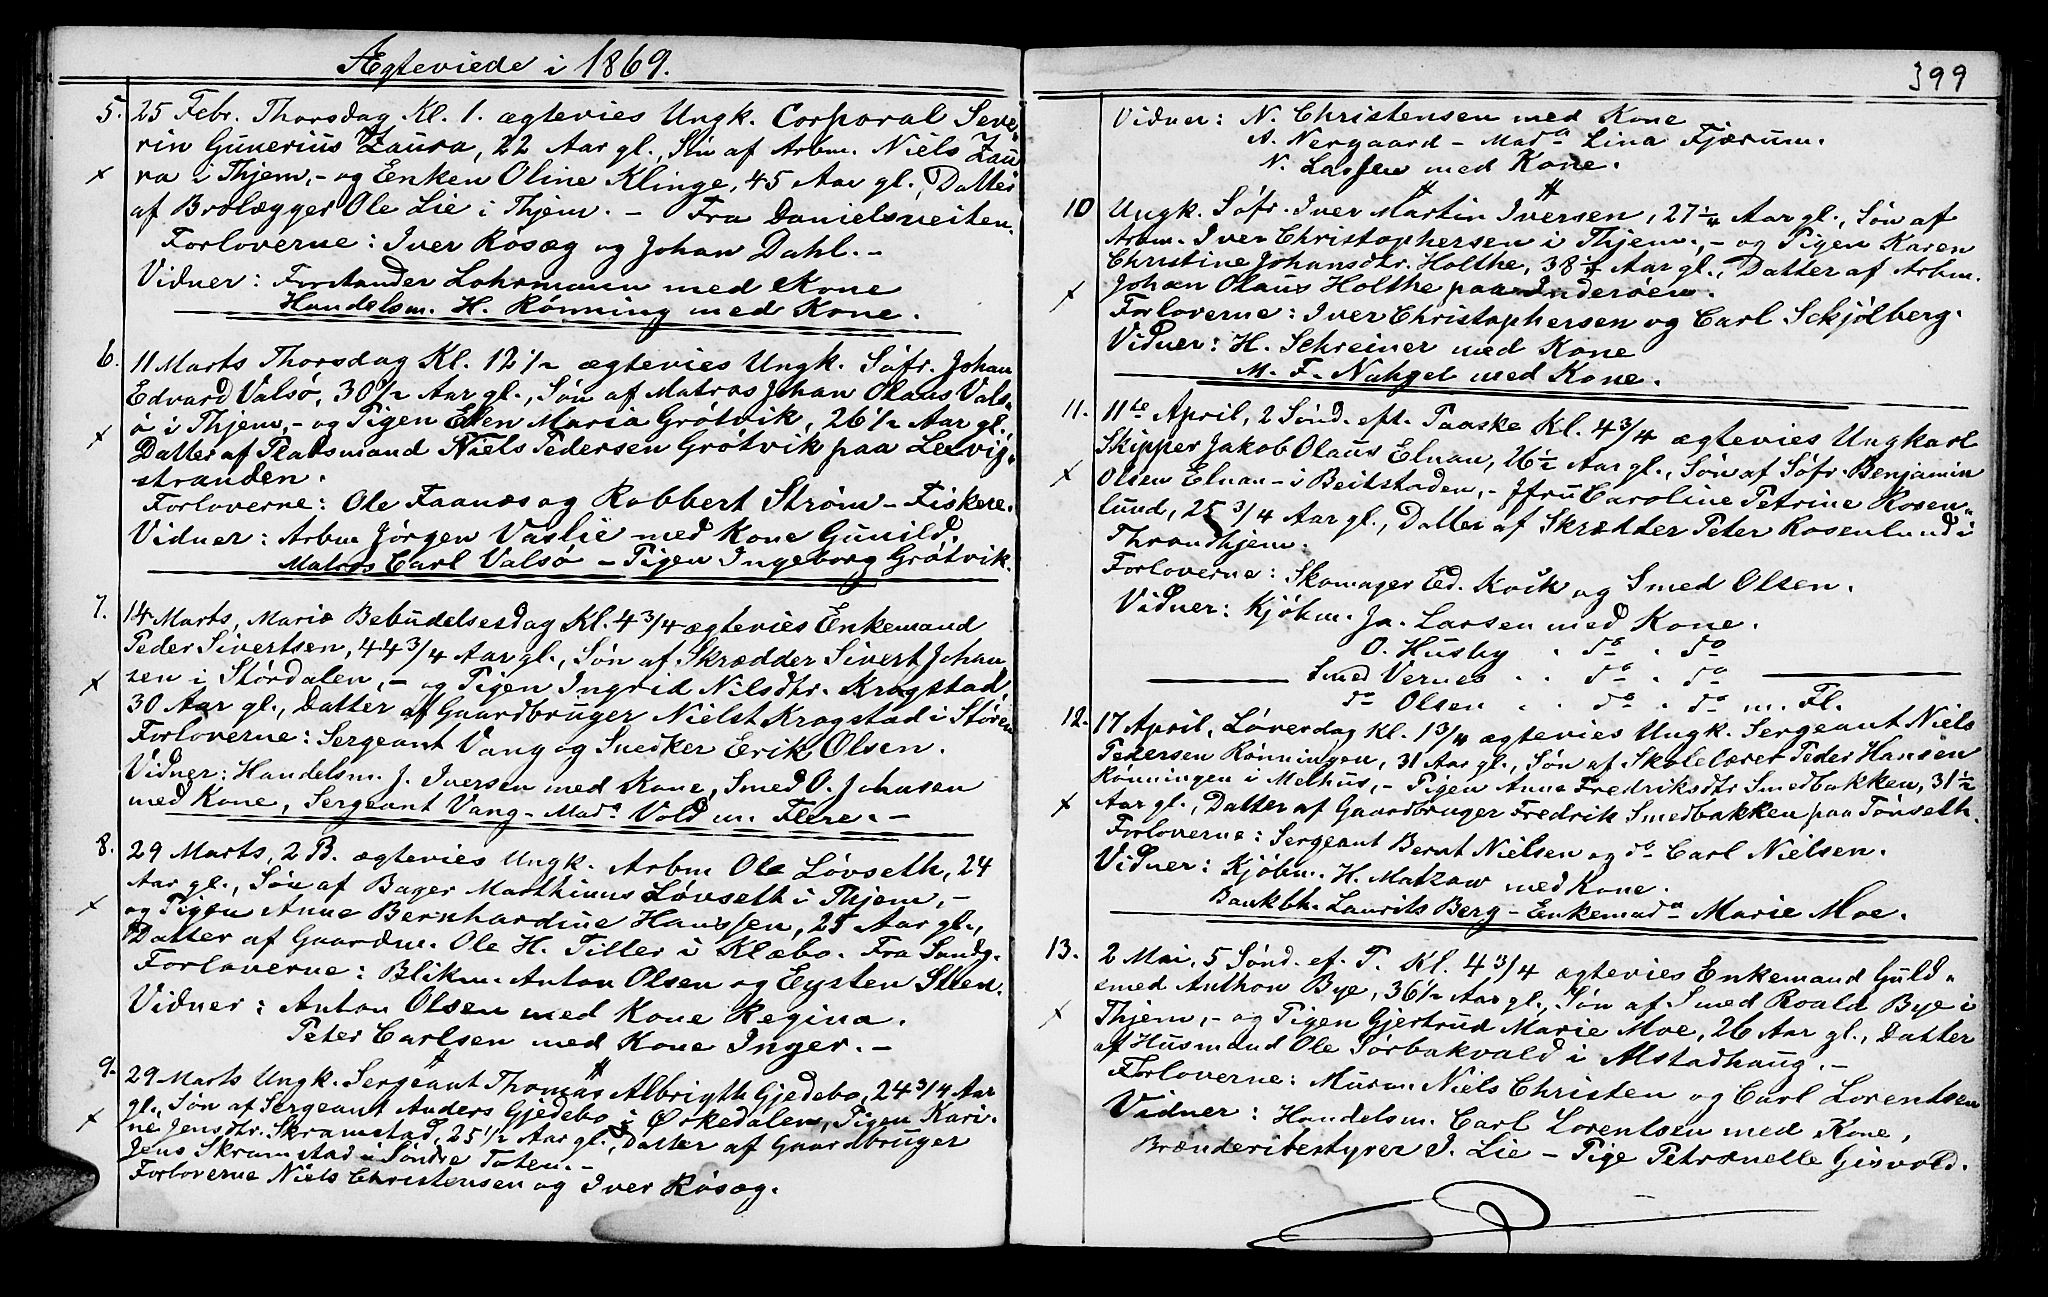 Ægteviede i 1869.
5. 25 Febr. Thorsdag Kl. 1. ægtevies Ungk. Corporal Seve-
rin Gunerius Zaura, 22 Aar gl., Søn af Arbm. Niels Zau
ra i Thjem, - og Enken Oline Klinge, 45 Aar gl., Datter
af Brolægger Ole Lie i Thjem. - Fra Danielsveiten.
Forloverne: Iver Rosæg og Johan Dahl. -
Vidner: Forstander Lohrmann med Kone
Handelsm. H. Rønning med Kone.
6. 11 Marts Thorsdag Kl. 12 1/2 ægtevies Ungk. Søfr. Johan
Edvard Valsø, 30 1/2 Aar gl., Søn af Matros Johan Olaus Vals-
ø i Thjem, - og Pigen Elen Maria Grøtvik, 26 1/2 Aar gl.
Datter af Pladsmand Niels Pedersen Grøtvik paa Lexvig-
stranden.
Forloverne: Ole Faanæs og Robbert Strøm - Fiskere.
Vidner: Arbm Jørgen Vaslie med Kone Gunild.
Matros Carl Valsø - Pigen Ingeborg Grøtvik.
7. 14 Marts, Mariæ Bebudelsesdag Kl. 4 3/4 ægtevies Enkemand
Peder Sivertsen, 44 3/4 Aar gl., Søn af Skrædder Sivert Johan
sen i Størdalen, - og Pigen Ingrid Nilsdtr. Kragstad,
30 Aar gl., Datter af Gaardbruger Niels Kragstad i Støren
Forloverne: Sergeant Vang og Snedker Erik Olsen.
Vidner: Handelsm. J. Iversen med Kone, Smed O. Johnsen
med Kone, Sergeant Vang - Mada Vold m. Flere. -
8. 29 Marts, 2 P. ægtevies Ungk. Arbm Ole Løvseth, 24
Aar gl., Søn af Bager Marthinus Løvseth i Thjem, -
og Pigen Anne Bernhardine Hanssen, 25 Aar gl.,
Datter af Gaardm. Ole H. Tiller i Klæbo. Fra Sandg.
Forloverne: Blikm. Anton Olsen og Eysten Steen.
Vidner: Anton Olsen med Kone Regina.
Peter Carlsen med Kone Inger. -
9. 29 Marts Ungk. Sergeant Thomas Albrigth Gjedebo, 24 3/4 Aar
gl., Søn af Sergeant Anders Gjedebo i Ørkedalen, Pigen Kari-
ne Jensdtr. Skramstad, 25 1/2 Aar gl., Datter af Gaardbruger
Jens Skramstad i Søndre Toten. -
Forloverne Niels Christensen og Iver Røsæg.
399
Vidner: N. Christensen med Kone
A. Nergaard - Mada Lina Fjærum.
N. Lassen med Kone.
10 Ungk. Søfr. Iver Martin Iversen, 27 1/4 Aar gl., Søn af
Arbm. Iver Christophersen i Thjem, - og Pigen Karen
Christine Johansdtr. Holthe, 38 Aar gl., Datter af Arbm.
Johan Olaus Holthe paa Inderøen.
Forloverne: Iver Christophersen og Carl Sckjølberg.
Vidner: H. Schreiner med Kone
M. F. Nahgel med Kone.
11. 11te April, 2 Sønd. eft. Paaske Kl. 4 3/4 ægtevies Ungkarl
Skipper Jakob Olaus Elnan, 26 1/2 Aar gl., Søn af Søfr. Benjamin
Olsen Elnan - i Beitstaden, - Jfru Caroline Petrine Rosen-
lund, 25 3/4 Aar gl., Datter af Skrædder Peter Rosenlund i
Throndhjem.
Forloverne: Skomager Ed. Kvik og Smed Olsen.
Vidner: Kjøbm. Ja. Larsen med Kone.
O. Husby . do . do
Smed Vernes . . do . do
do Olsen . . do . do m. Fl.
12. 17 April, Løverdag Kl. 1 3/4 ægtevies Ungk. Sergeant Niels
Pedersen Rønningen, 31 Aar gl., Søn af Skolelærer Peder Hansen
Rønningen i Melhus, - Pigen Anne Fredriksdtr Smedbakken, 31 1/2
Aar gl., Datter af Gaardbruger Fredrik Smedbakken paa Tønseth.
Forloverne: Sergeant Bernt Nielsen og do Carl Nielsen.
Vidner: Kjøbm. H. Matzow med Kone.
Bankbh. Laurits Berg - Enkemada Marie Moe.
13. 2 Mai, 5 Sønd. ef. P. Kl. 4 3/4 ægtevies Enkemand Guld-
smed Anthon Bye, 36 1/2 Aar gl., Søn af Smed Roald Bye i
Thjem, - og Pigen Gjertrud Marie Moe, 26 Aar gl., Datter
af Husmand Ole Sørbakvald i Alstadhaug. -
Forloverne: Murm. Niels Christen og Carl Lorentsen
Vidner: Handelsm. Carl Lorentsen med Kone,
Brænderibestyrer I. Lie - Pige Petronelle Gisvold.